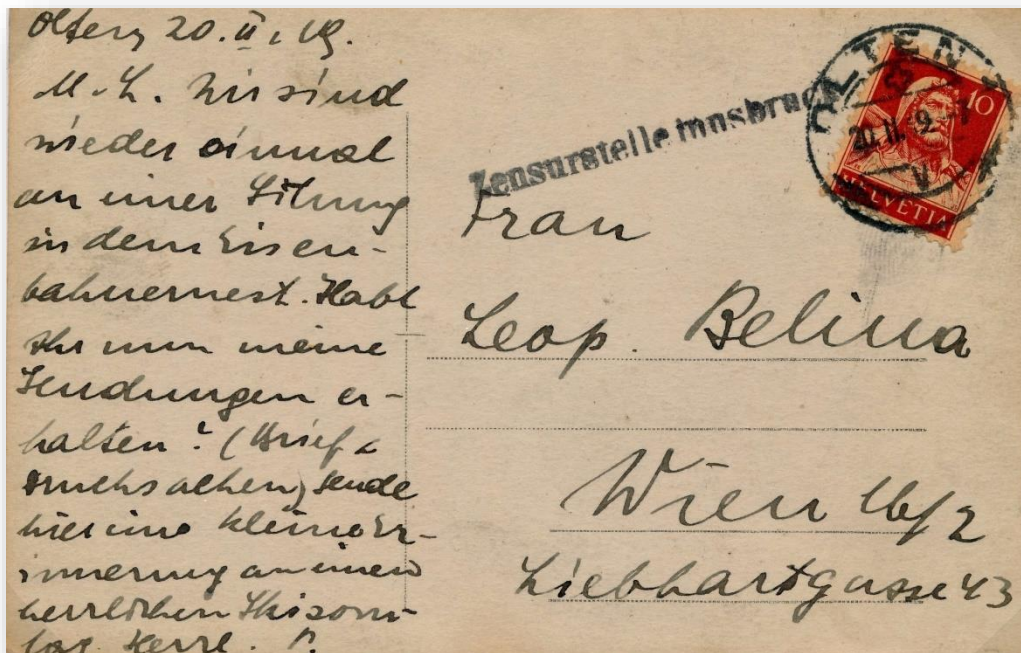 Olten, 20. II. 19.
M. L. Wir sind
wieder einmal
an einer Sitzung
in dem Eisen-
bahnernest. Habt
Ihr nun meine
Sendungen er-
halten? (Brief &
Drucksachen) Sende
hier eine kleine Er-
innerung an einen
herrlichen Skisonn-
tag. Herzl.
Zensurstelle Innsbruck
OLTEN 1
20. II. 19. - 7
V
10
HELVETIA
Frau
Leop. Belina
Wien 16/2
Liebhartgasse 43